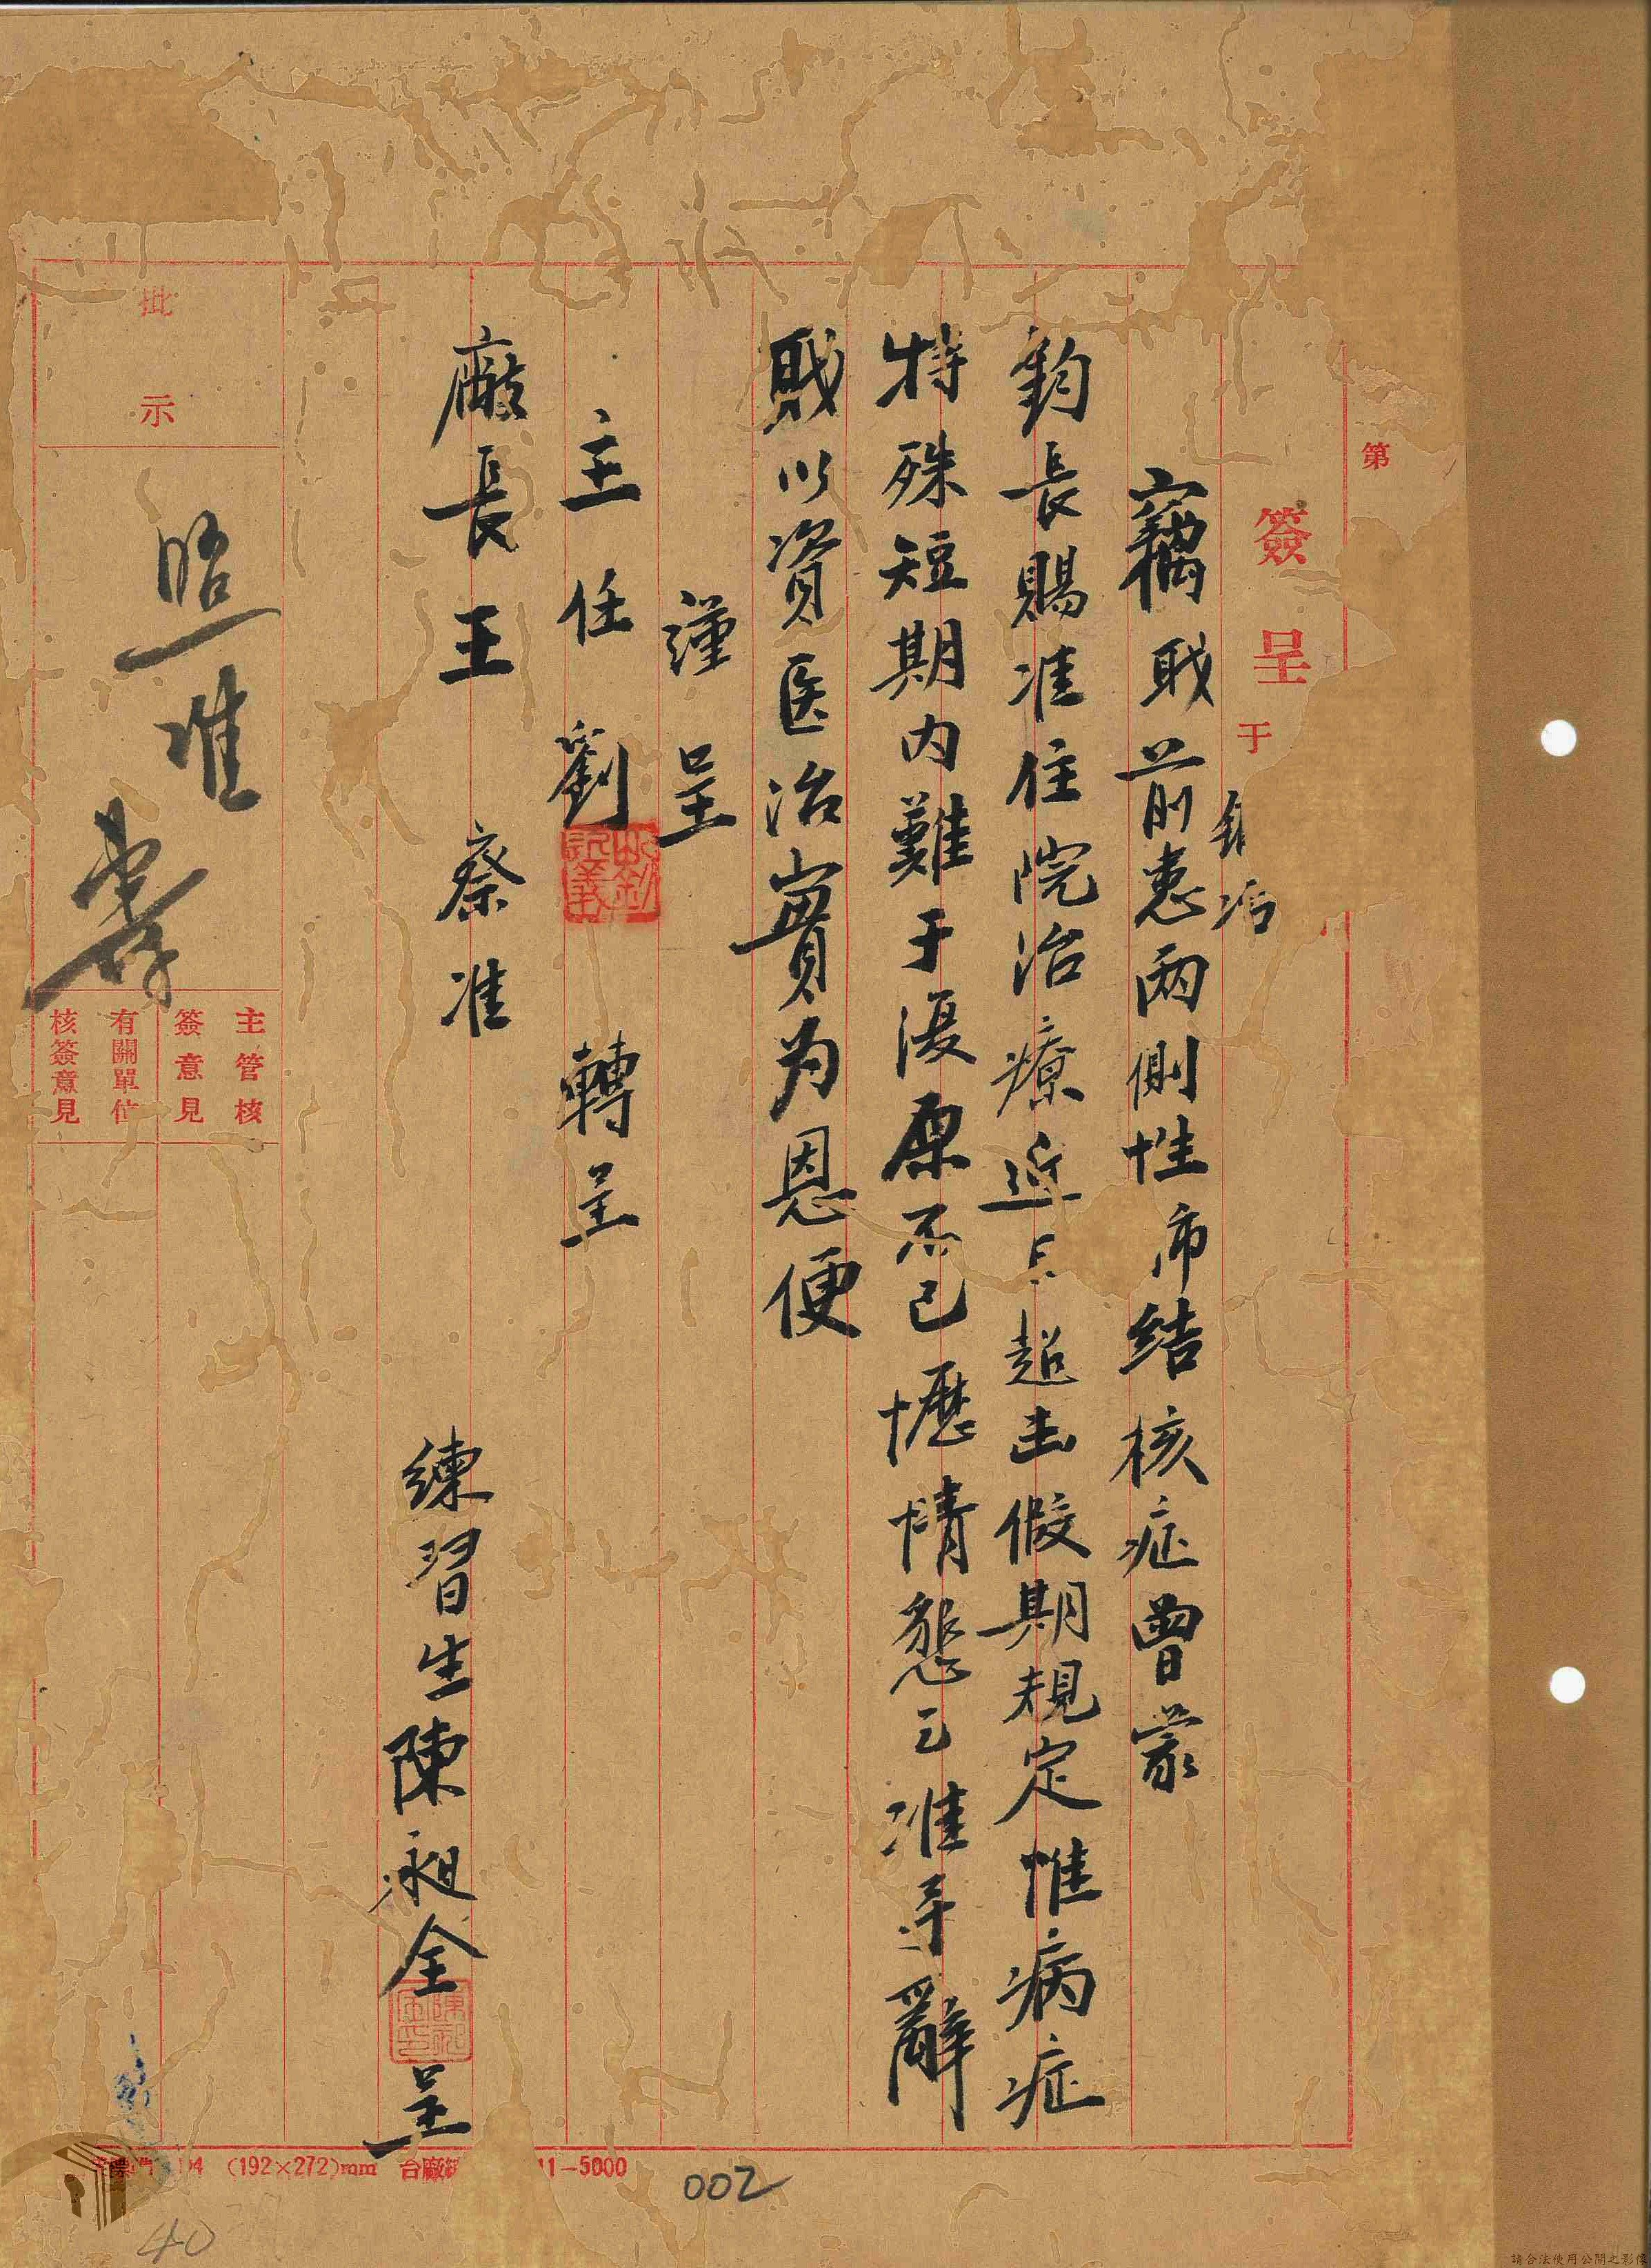 第
簽呈 于
竊耴前患兩側性市结核症曾蒙
鈞長賜准住院治療近已超出假期規定惟病症
特殊短期内難于復原不已懕情懇乞准予辭
耴以資医治實为恩便
謹呈
主任劉 轉呈
廠長王 察准
練習生陳昶全呈
批示
照准
主管核簽意見
有關單位核簽意見
(192×272)mm 台廠 11-5000
002
40
請合法使用公開之影像